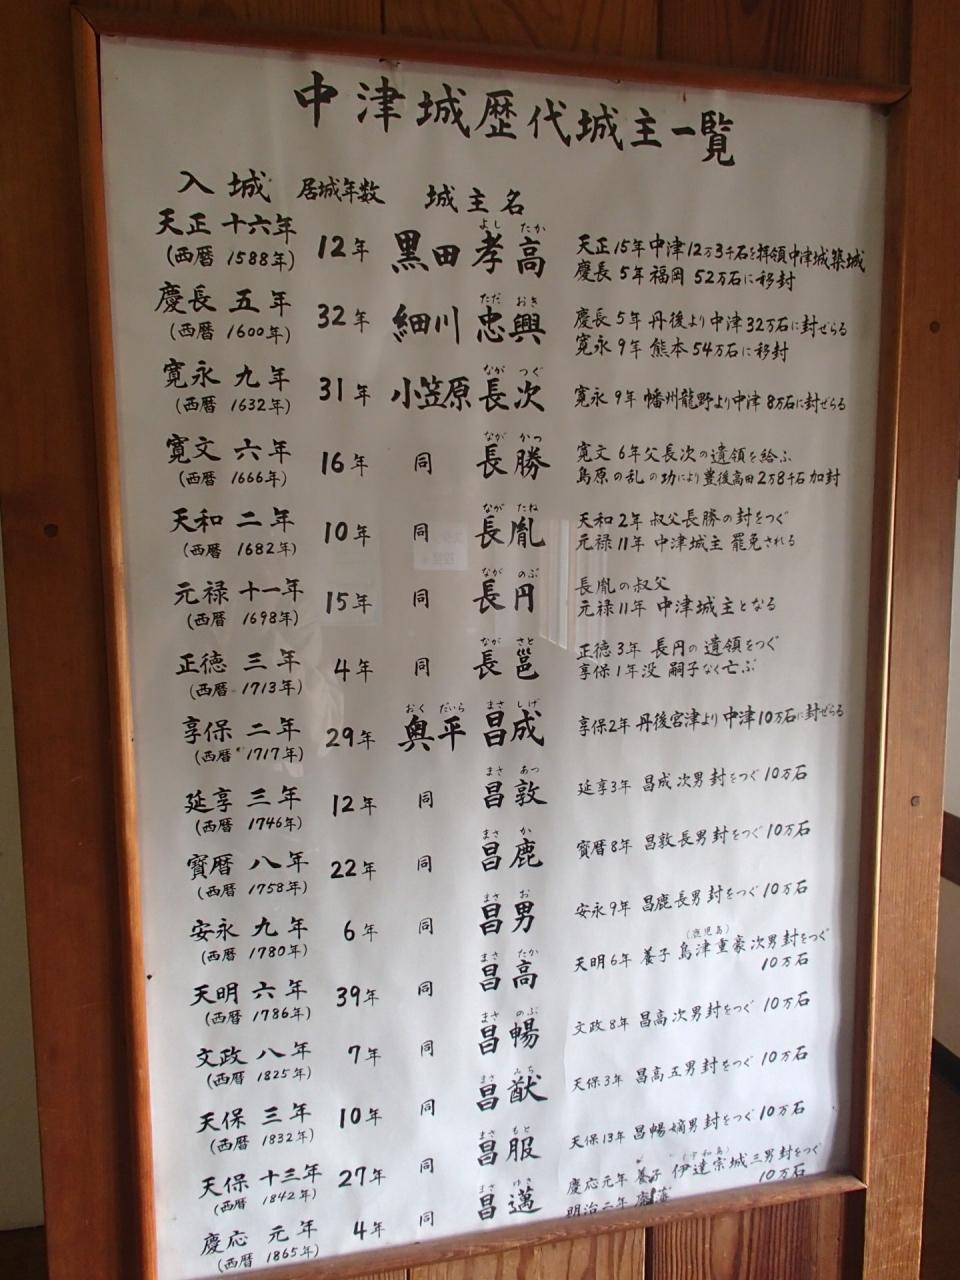 中津城歴代城主一覧
入城 居城年数 城主名
天正十六年 (西暦 1588年) 12年 黒田孝高 よし たか
天正15年 中津12万3千石を拝領中津城築城
慶長5年 福岡 52万石に移封
慶長五年 (西暦 1600年) 32年 細川忠興 ただ おき
慶長5年 丹後より中津32万石に封ぜらる
寛永9年 熊本54万石に移封
寛永九年 (西暦 1632年) 31年 小笠原長次 なが つぐ
寛永9年 幡州龍野より中津 8万石に封ぜらる
寛文六年 (西暦 1666年) 16年 同 長勝 なが かつ
寛文 6年父長次の遺領を給ふ
島原の乱の功により豊後高田2万8千石加封
天和二年 (西暦 1682年) 10年 同 長胤 なが たね
天和2年 叔父長勝の封をつぐ
元禄11年 中津城主 罷免される
元禄十一年 (西暦 1698年) 15年 同 長円 なが のぶ
長胤の叔父
元禄11年 中津城主となる
正徳三年 (西暦 1713年) 4年 同 長邕 なが さと
正徳3年 長円の遺領をつぐ
享保1年没 嗣子なく亡ぶ
享保二年 (西暦 1717年) 29年 奥平昌成 おく だいら まさ しげ
享保2年 丹後宮津より中津10万石に封ぜらる
延享三年 (西暦 1746年) 12年 同 昌敦 まさ あつ
延享3年 昌成次男封をつぐ10万石
寳暦八年 (西暦 1758年) 22年 同 昌鹿 まさ か
寳暦8年 昌敦長男封をつぐ10万石
安永九年 (西暦 1780年) 6年 同 昌男 まさ お
安永9年 昌鹿長男封をつぐ10万石
天明六年 (西暦 1786年) 39年 同 昌高 まさ たか
(鹿児島)
天明6年 養子 島津重豪次男封をつぐ
10万石
文政八年 (西暦 1825年) 7年 同 昌暢 まさ のぶ
文政8年 昌高次男封をつぐ 10万石
天保三年 (西暦 1832年) 10年 同 昌猷 まさ みち
天保3年 昌高五男封をつぐ 10万石
天保十三年 (西暦 1842年) 27年 同 昌服 まさ もと
天保13年 昌暢嫡男封をつぐ 10万石
慶応元年 (西暦 1865年) 4年 同 昌邁 まさ ゆき
(宇和島)
慶応元年 養子 伊達宗城三男封をつぐ
明治二年 10万石